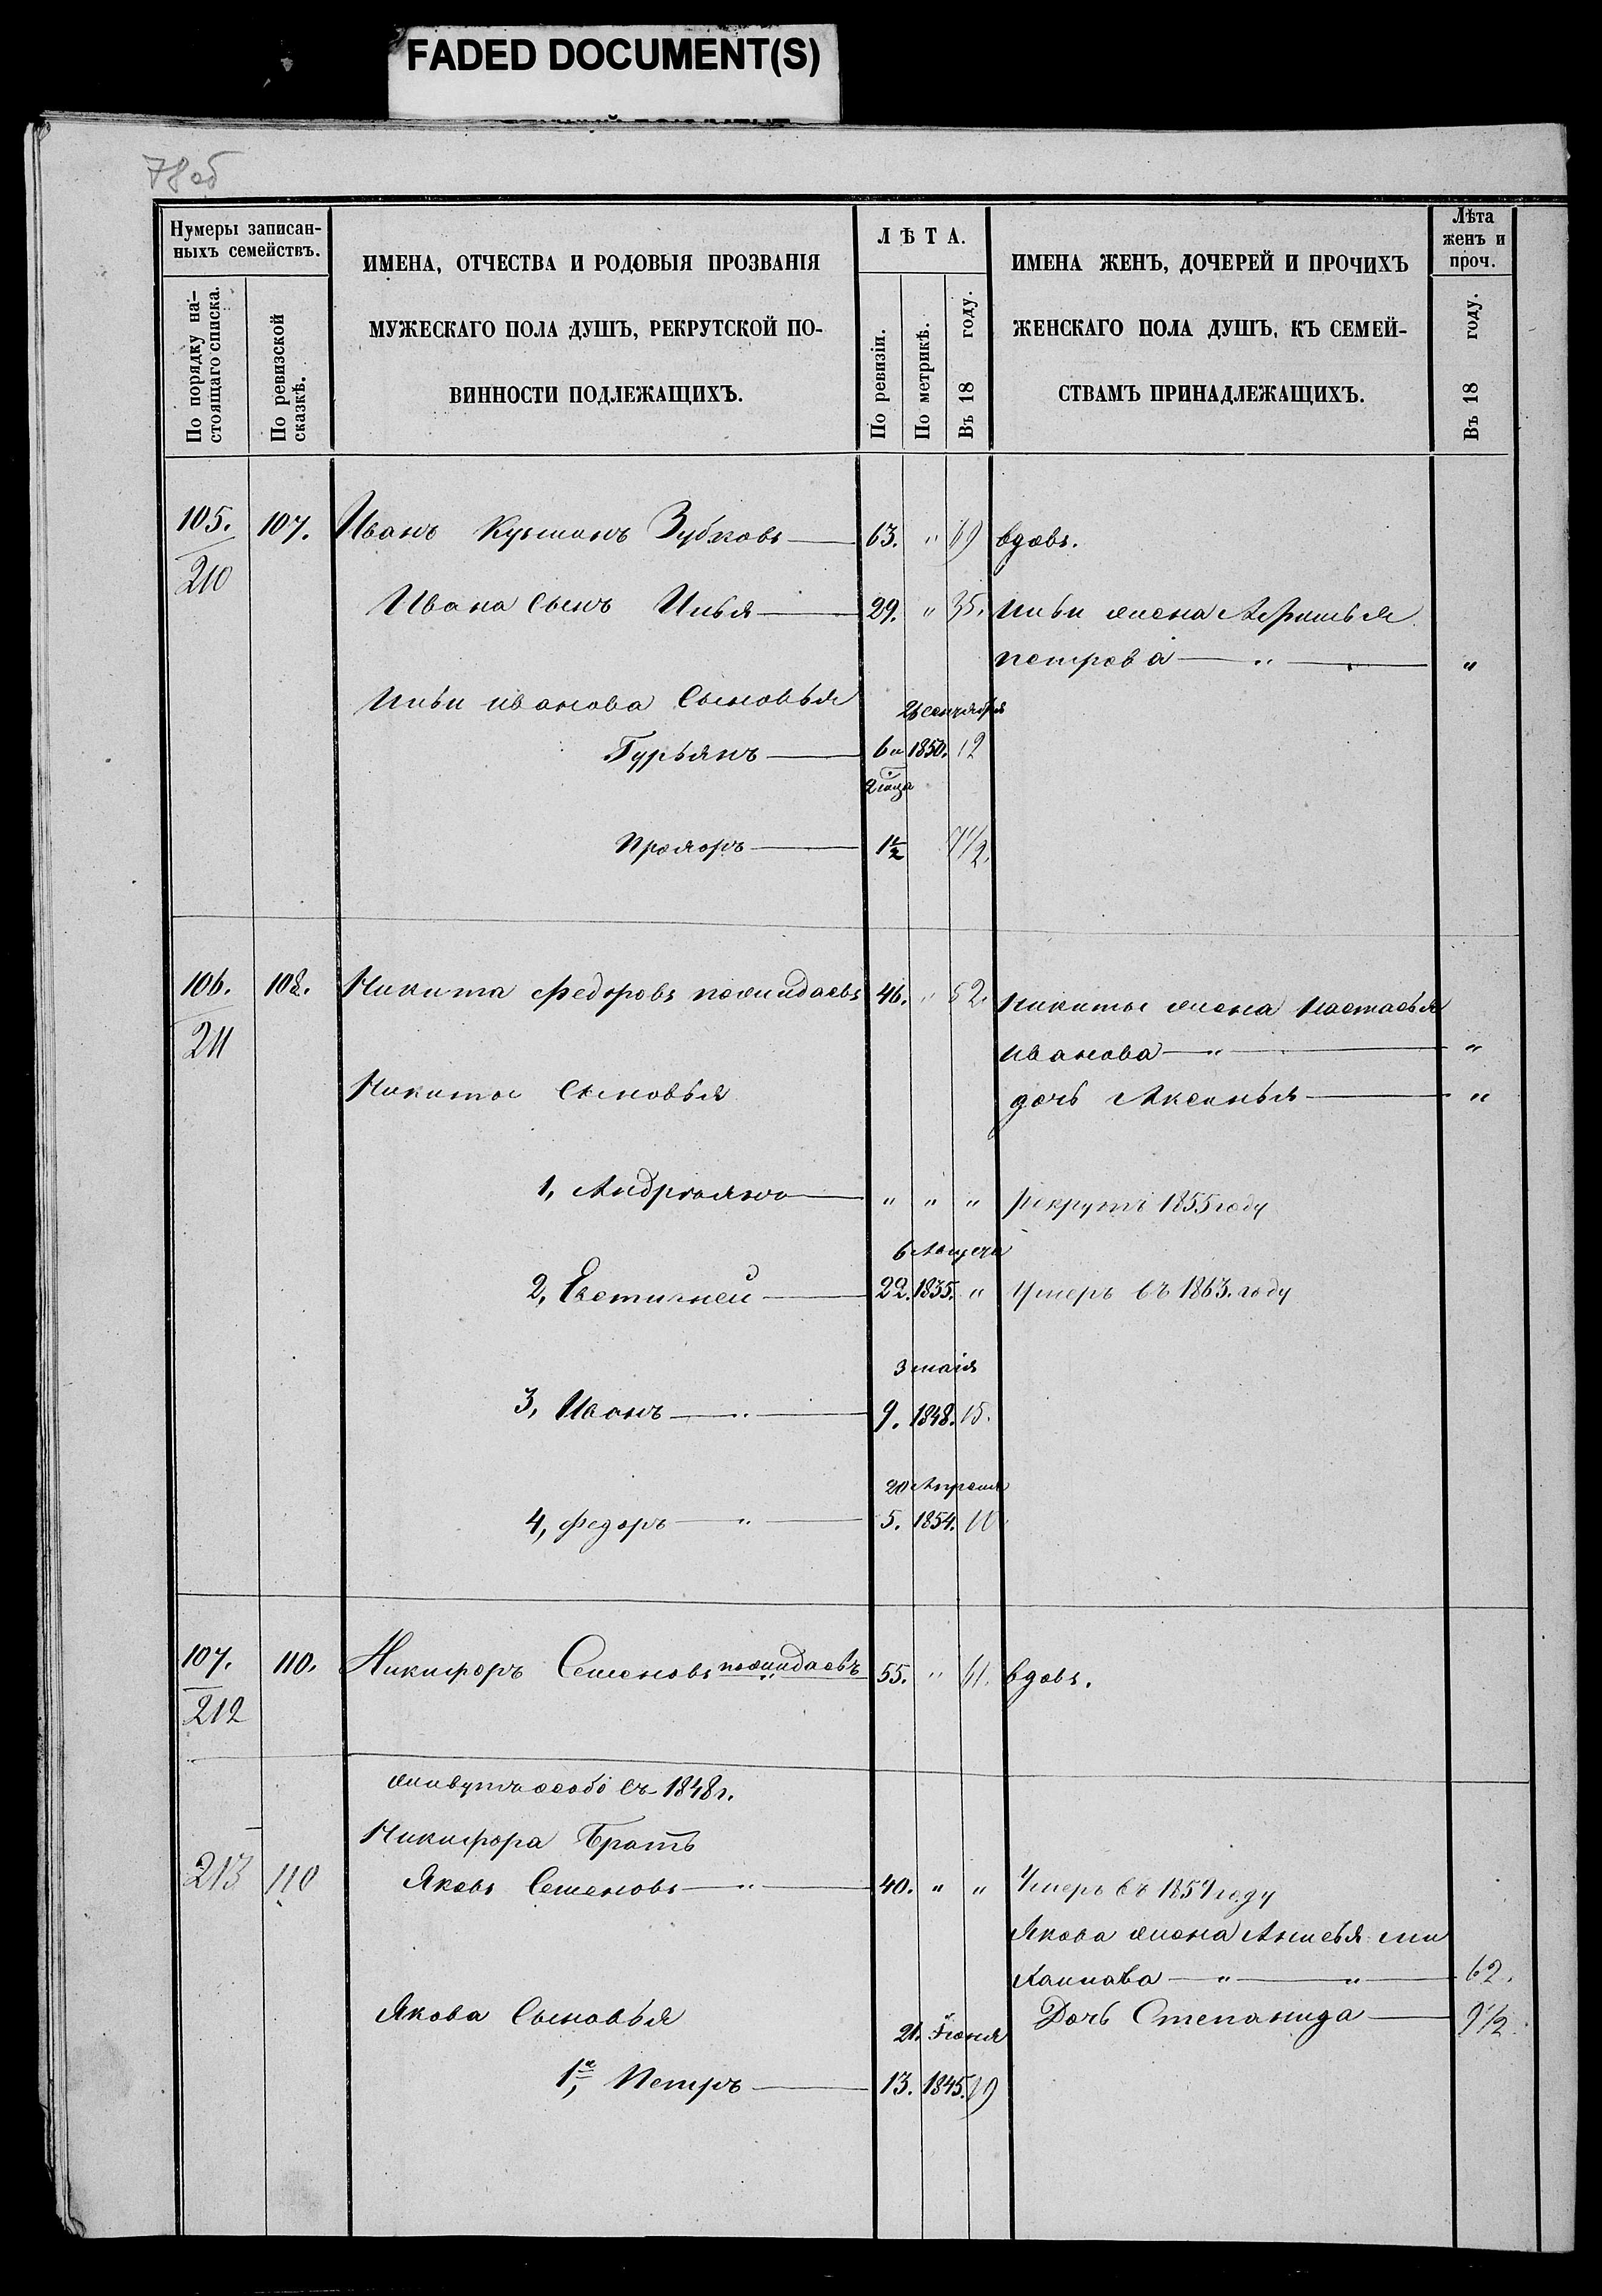 FADED DOCUMENT(S)
78 об
Нумеры записан-
ныхъ семействъ.
По порядку на-
стоящаго списка.
По ревизской
сказкѣ.
ИМЕНА, ОТЧЕСТВА И РОДОВЫЯ ПРОЗВАНІЯ
МУЖЕСКАГО ПОЛА ДУШЪ, РЕКРУТСКОЙ ПО-
ВИННОСТИ ПОДЛЕЖАЩИХЪ.
ЛѢТА.
По ревизіи.
По метрикѣ.
Въ 18 году.
ИМЕНА ЖЕНЪ, ДОЧЕРЕЙ И ПРОЧИХЪ
ЖЕНСКАГО ПОЛА ДУШЪ, КЪ СЕМЕЙ-
СТВАМЪ ПРИНАДЛЕЖАЩИХЪ.
Лѣта
женъ и
проч.
Въ 18 году.
105. 107. Иванъ Кузминъ Зубковъ 63. " 69 вдовъ.
210
Ивана Сынъ Илья 29. " 35. Ильи жена
петрова " "
Ильи иванова Сыновья
сентября
Гурьянъ 6 и 1850. 12
2 м̃ца
Прохоръ 1½ 7½.
106. 108. Никита федоровъ 46. " 52. никиты жена настасья
211
иванова " "
Никиты Сыновья дочь Аксинья "
1, Андреянъ " " " рекрутъ 1855 году
6 Августа
2, Евстигней 22. 1835. " Умеръ въ 1863. году
3 маія
3, Иванъ " 9. 1848. 15.
20 Апреля
4, федоръ " 5. 1854. 10
107. 110. Никифоръ Семеновъ 55. " 61. вдовъ.
212
живутъ особо съ 1848 г.
Никифора Братъ
213 110 Яковъ Семеновъ " 40. " " Умеръ въ году
Якова жена Анисья ми
хаилова " " 62.
Якова Сыновья Дочь Степанида 9½
21. Іюня
1й, Петръ 13. 1845. 19